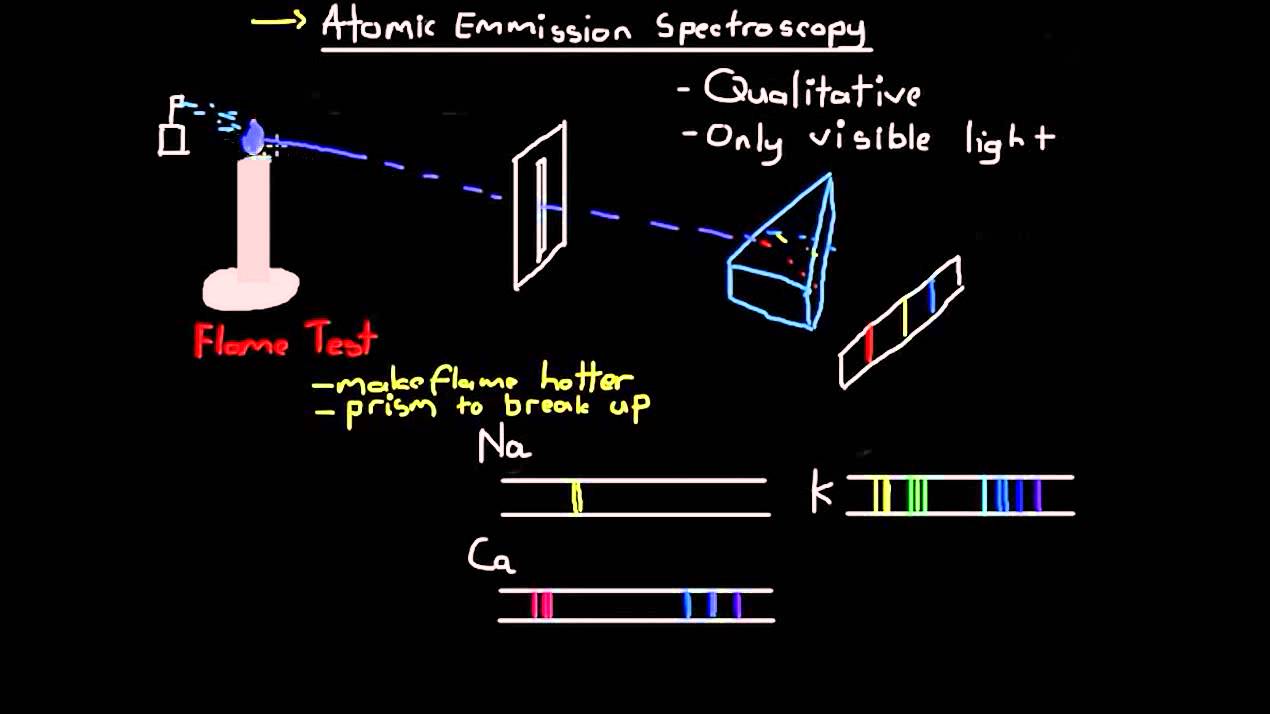 → Atomic Emmission Spectroscopy
- Qualitative
- Only visible light
Flame Test
- make flame hotter
- prism to break up
Na
K
Ca